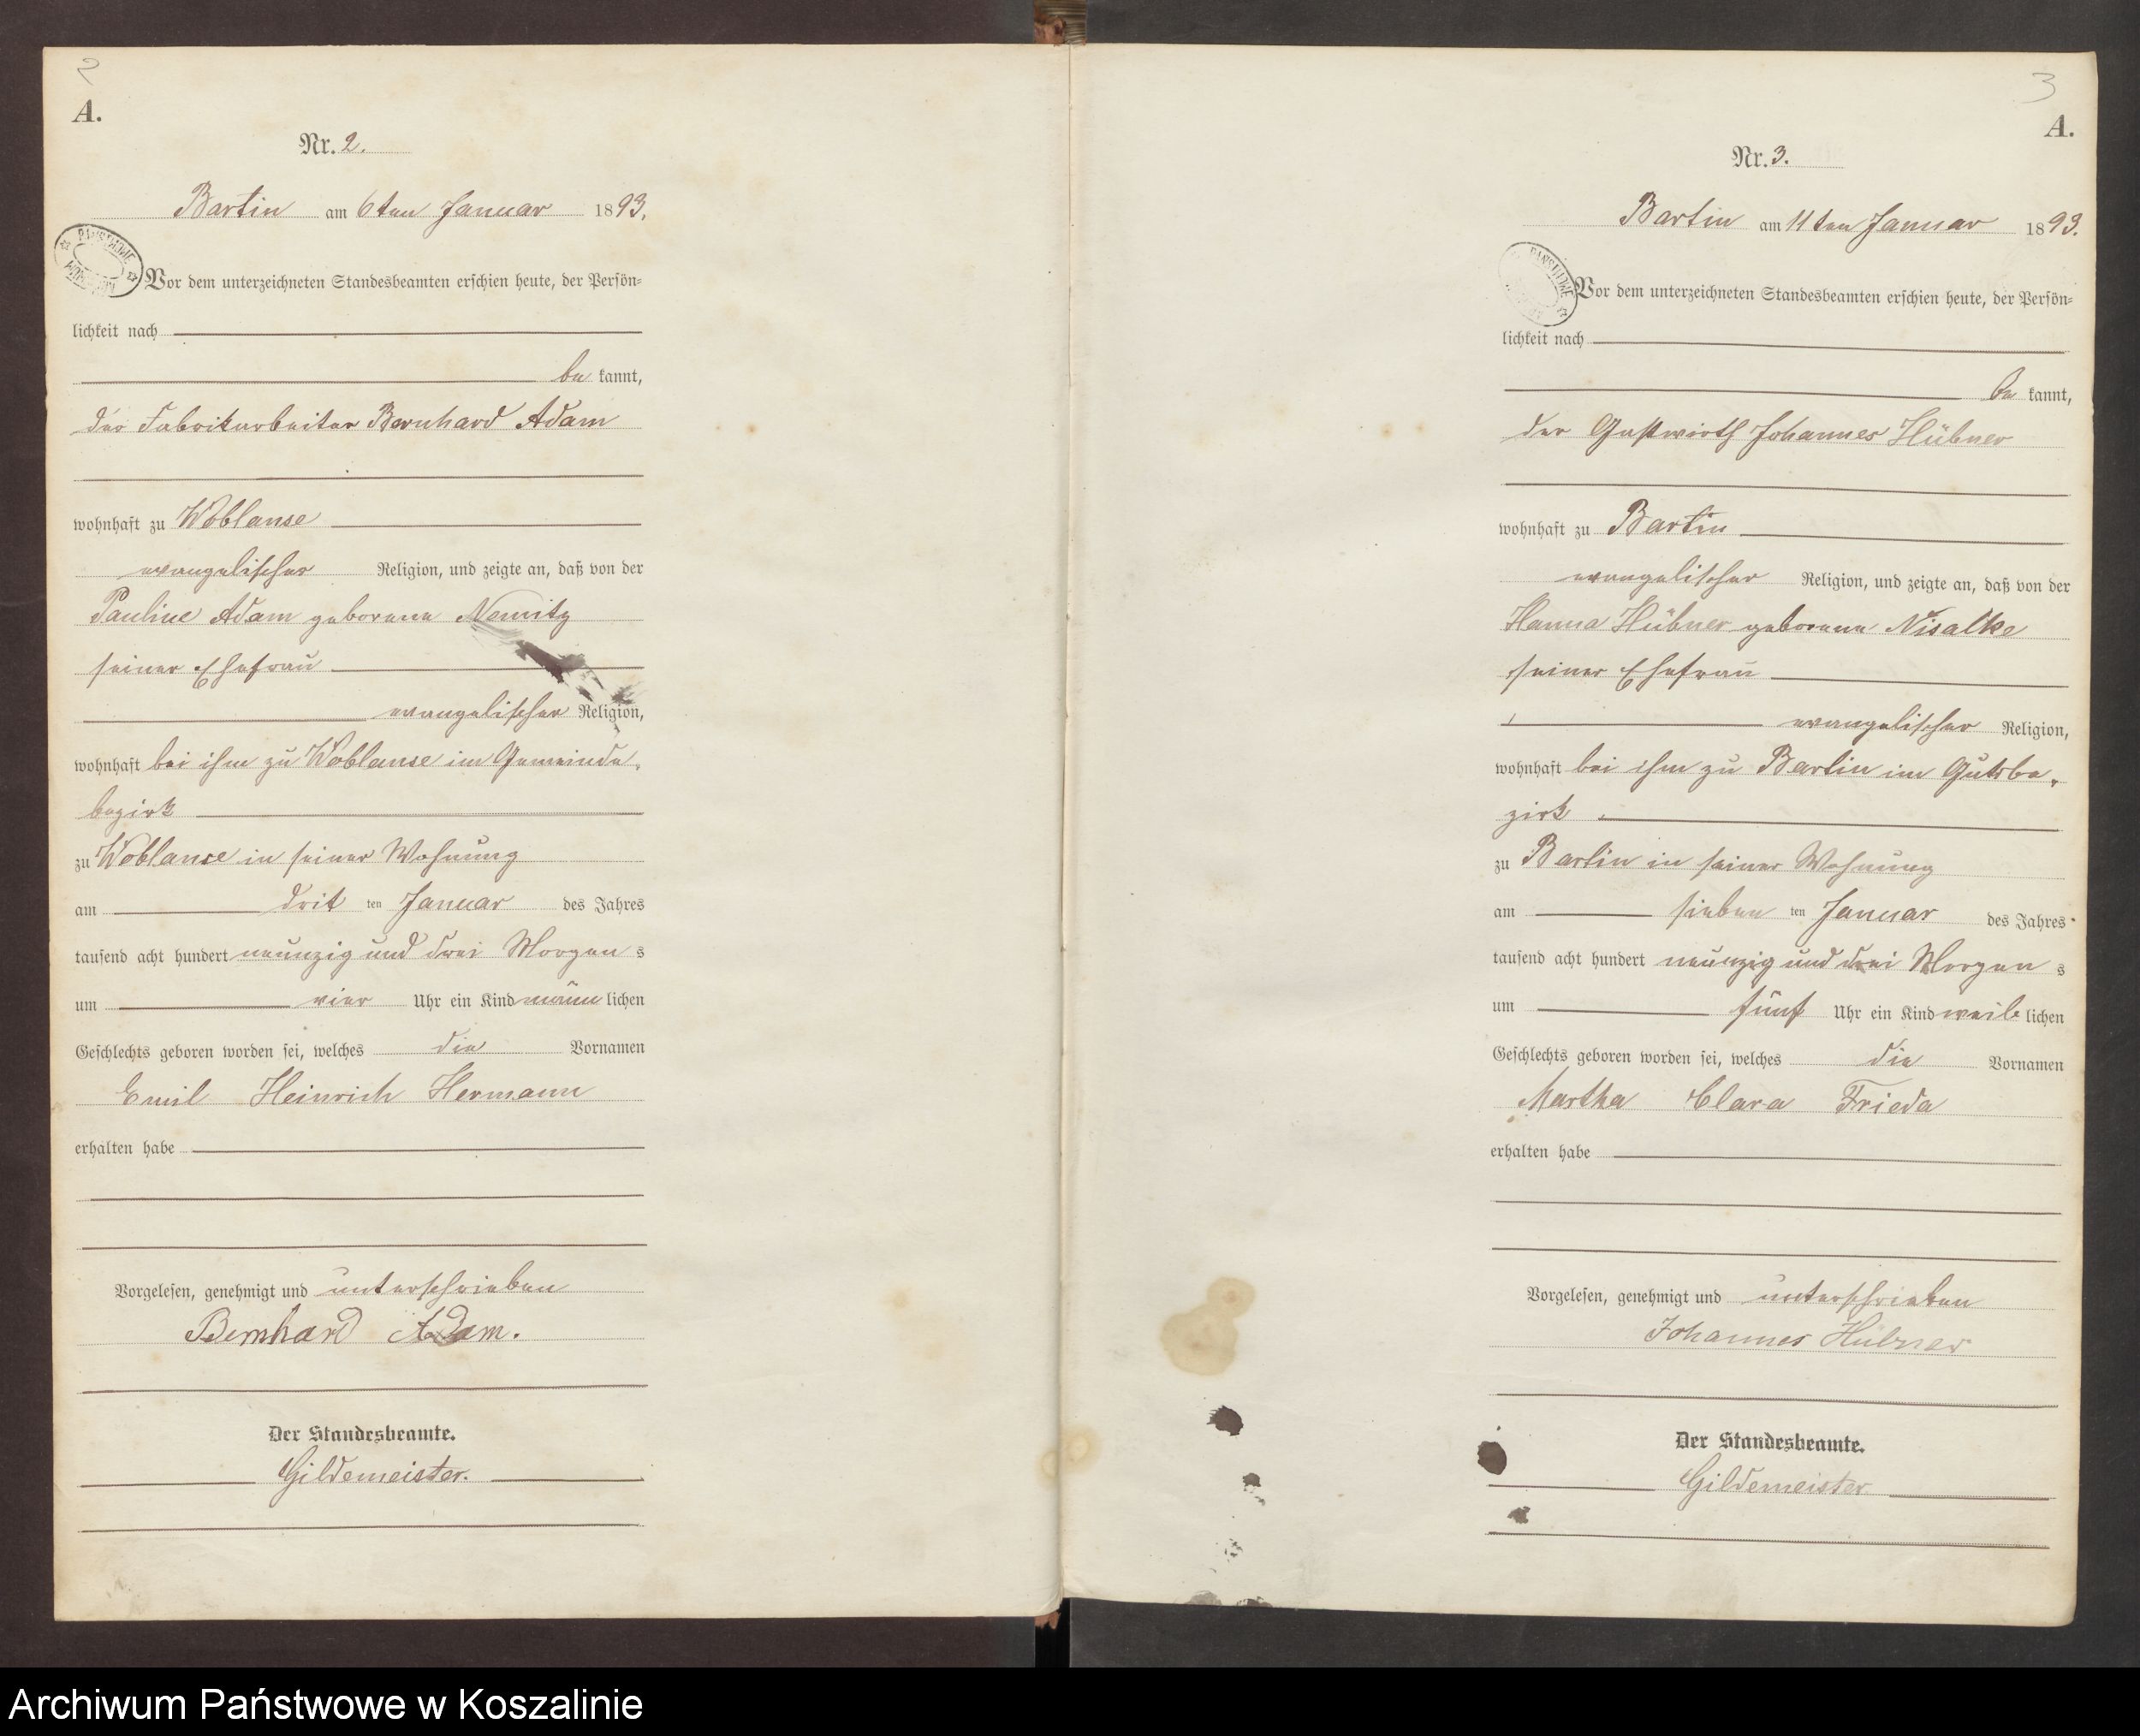 2
A.
Nr. 2.
Bartin am 6ten Januar 1893.
PAŃSTWOWE
Vor dem unterzeichneten Standesbeamten erschien heute, der Persön=
lichkeit nach
be kannt,
der Fabrikarbeiter Bernhard Adam
wohnhaft zu Woblanse
evangelischer Religion, und zeigte an, daß von der
Pauline Adam geborene Nemitz
seiner Ehefrau
evangelischer Religion,
wohnhaft bei ihm zu Woblanse im Gemeinde-
bezirk
zu Woblanse in seiner Wohnung
am dritten Januar des Jahres
tausend acht hundert neunzig und drei Morgens
um vier Uhr ein Kind männlichen
Geschlechts geboren worden sei, welches die Vornamen
Emil Heinrich Hermann
erhalten habe
Vorgelesen, genehmigt und unterschrieben
Bernhard Adam.
Der Standesbeamte.
Gildemeister.
3
A.
Nr. 3.
Bartin am 11ten Januar 1893.
PAŃSTWOWE
Vor dem unterzeichneten Standesbeamten erschien heute, der Persön=
lichkeit nach
be kannt,
der Gastwirth Johannes Hübner
wohnhaft zu Bartin
evangelischer Religion, und zeigte an, daß von der
Hanna Hübner geborene Nisalke
seiner Ehefrau
evangelischer Religion,
wohnhaft bei ihm zu Bartin im Gutsbe-
zirk
zu Bartin in seiner Wohnung
am siebenten Januar des Jahres
tausend acht hundert neunzig und drei Morgens
um fünf Uhr ein Kind weiblichen
Geschlechts geboren worden sei, welches die Vornamen
Martha Clara Frieda
erhalten habe
Vorgelesen, genehmigt und unterschrieben
Johannes Hübner
Der Standesbeamte.
Gildemeister
Archiwum Państwowe w Koszalinie